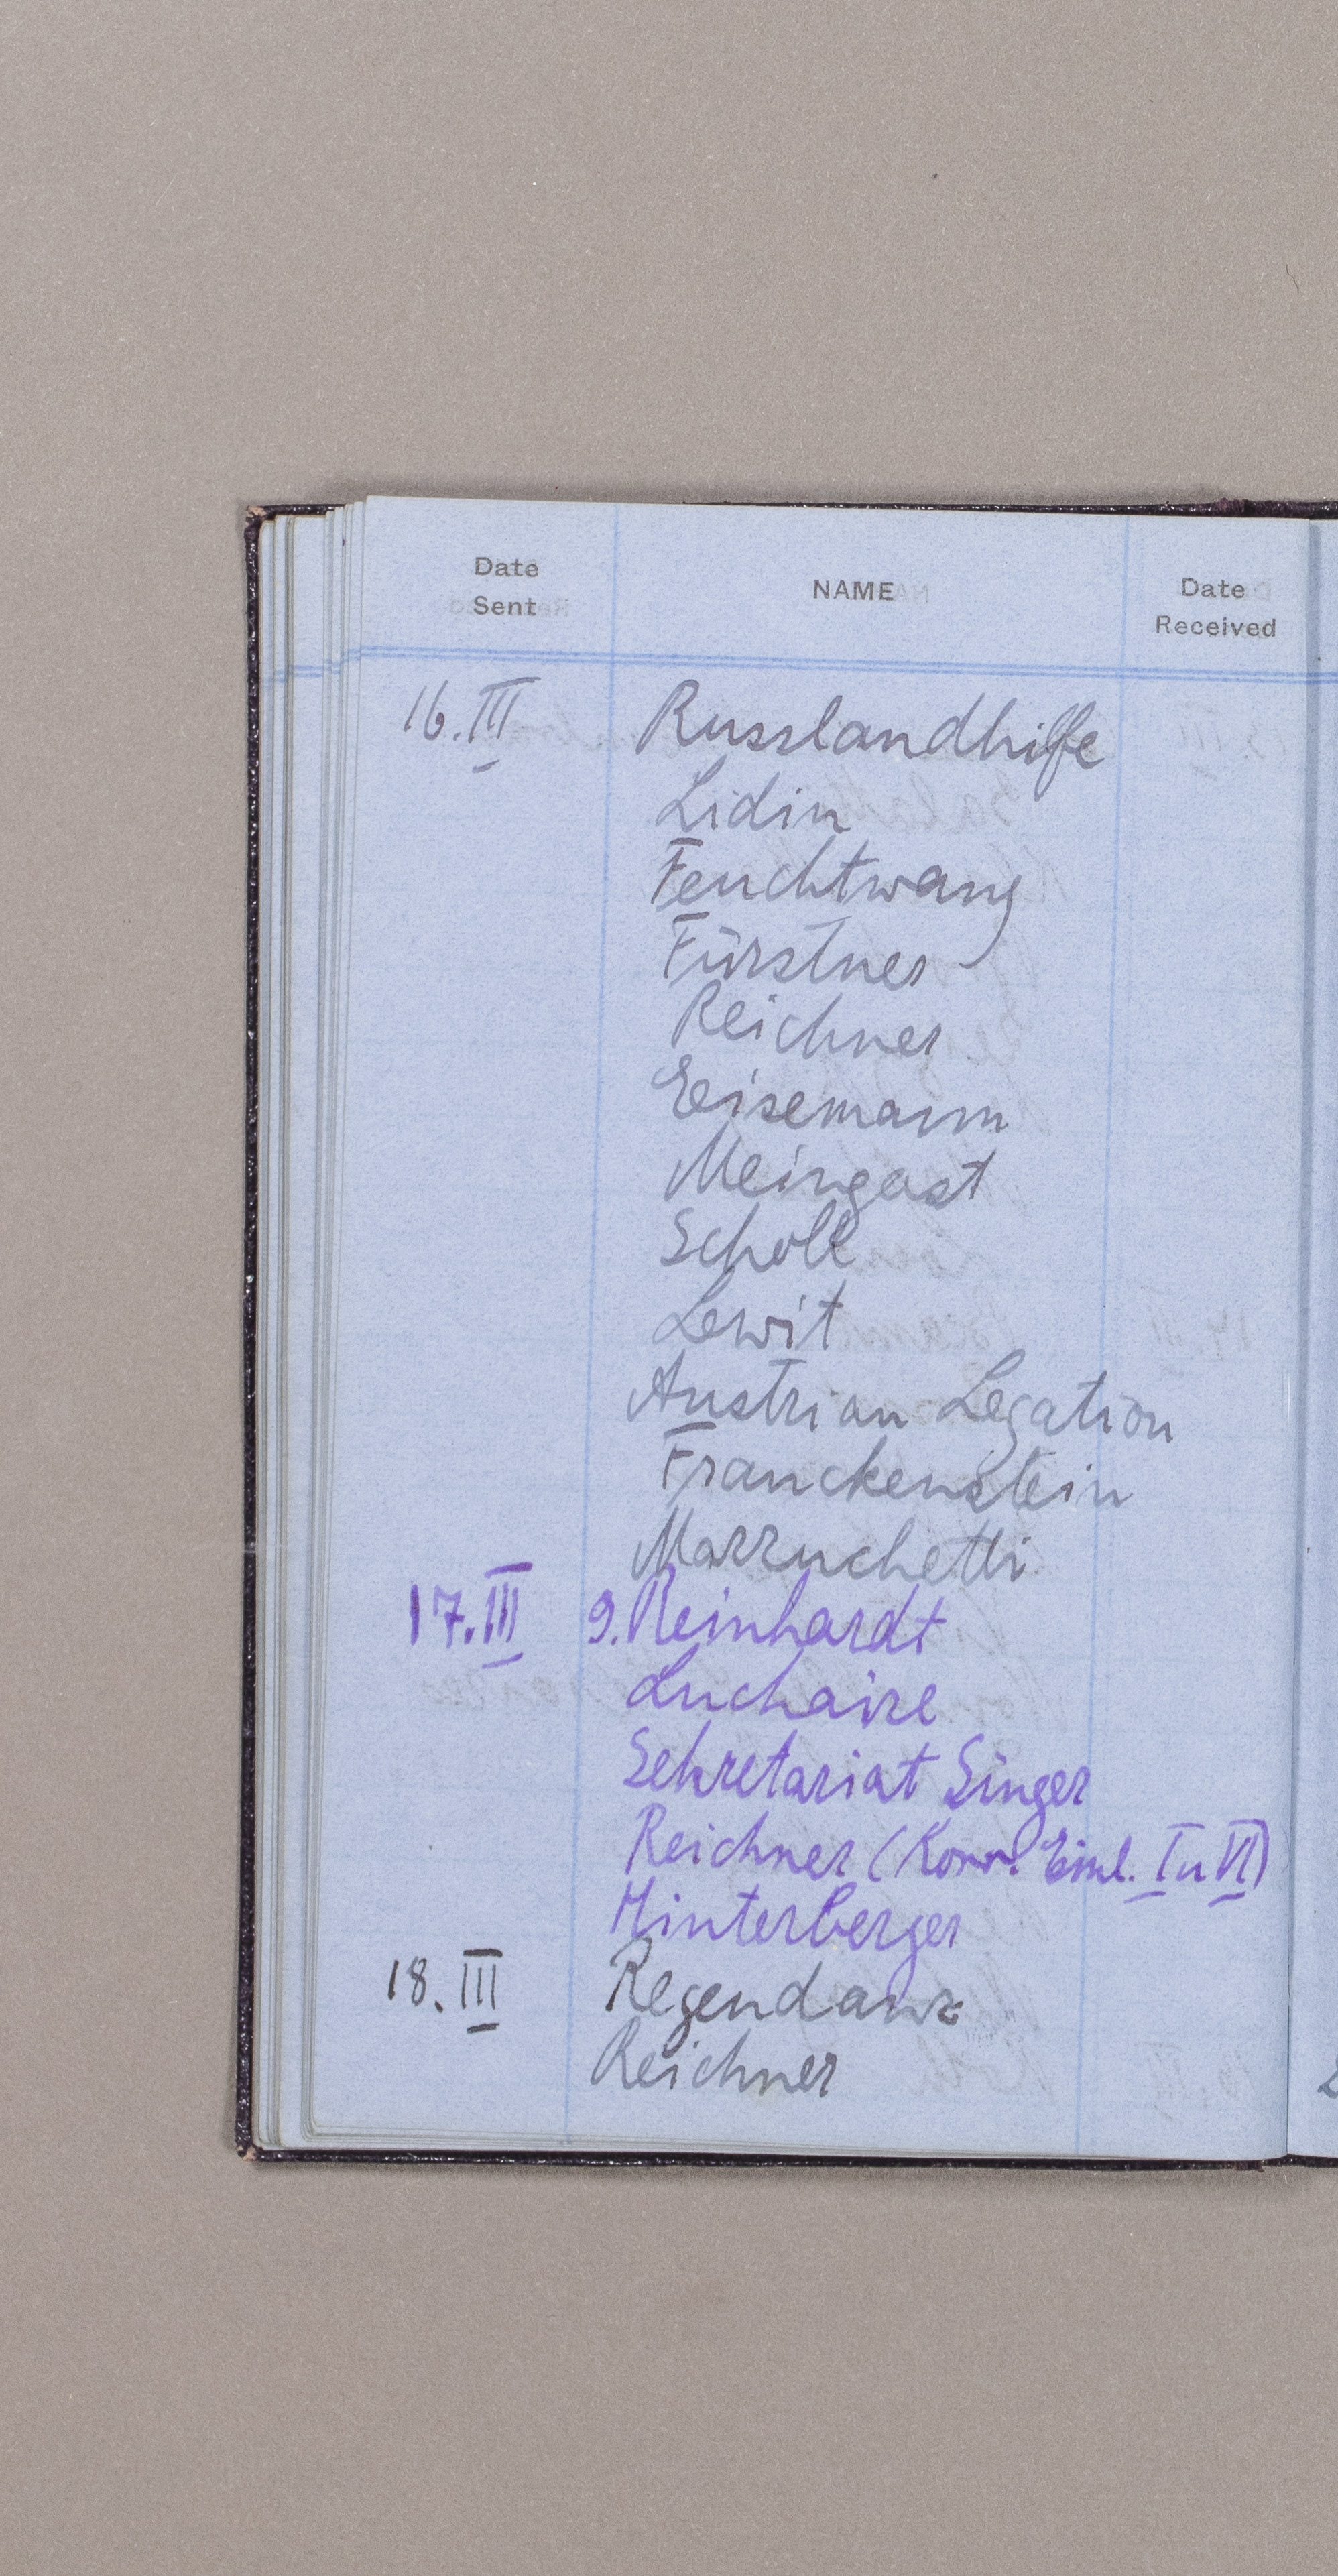 Date Sent NAME Date Received
16. III Russlandhilfe
Lidin
Feuchtwang
Fürstner
Reichner
Eisemann
Meingast
Scholl
Lewit
Austrian Legation
Franckenstein
Marruchetti
17. III G. Reinhardt
Luchaire
Sekretariat Singer
Reichner (Korr. Einl. I u VI)
Hinterberger
18. III Regendanz
Reichner